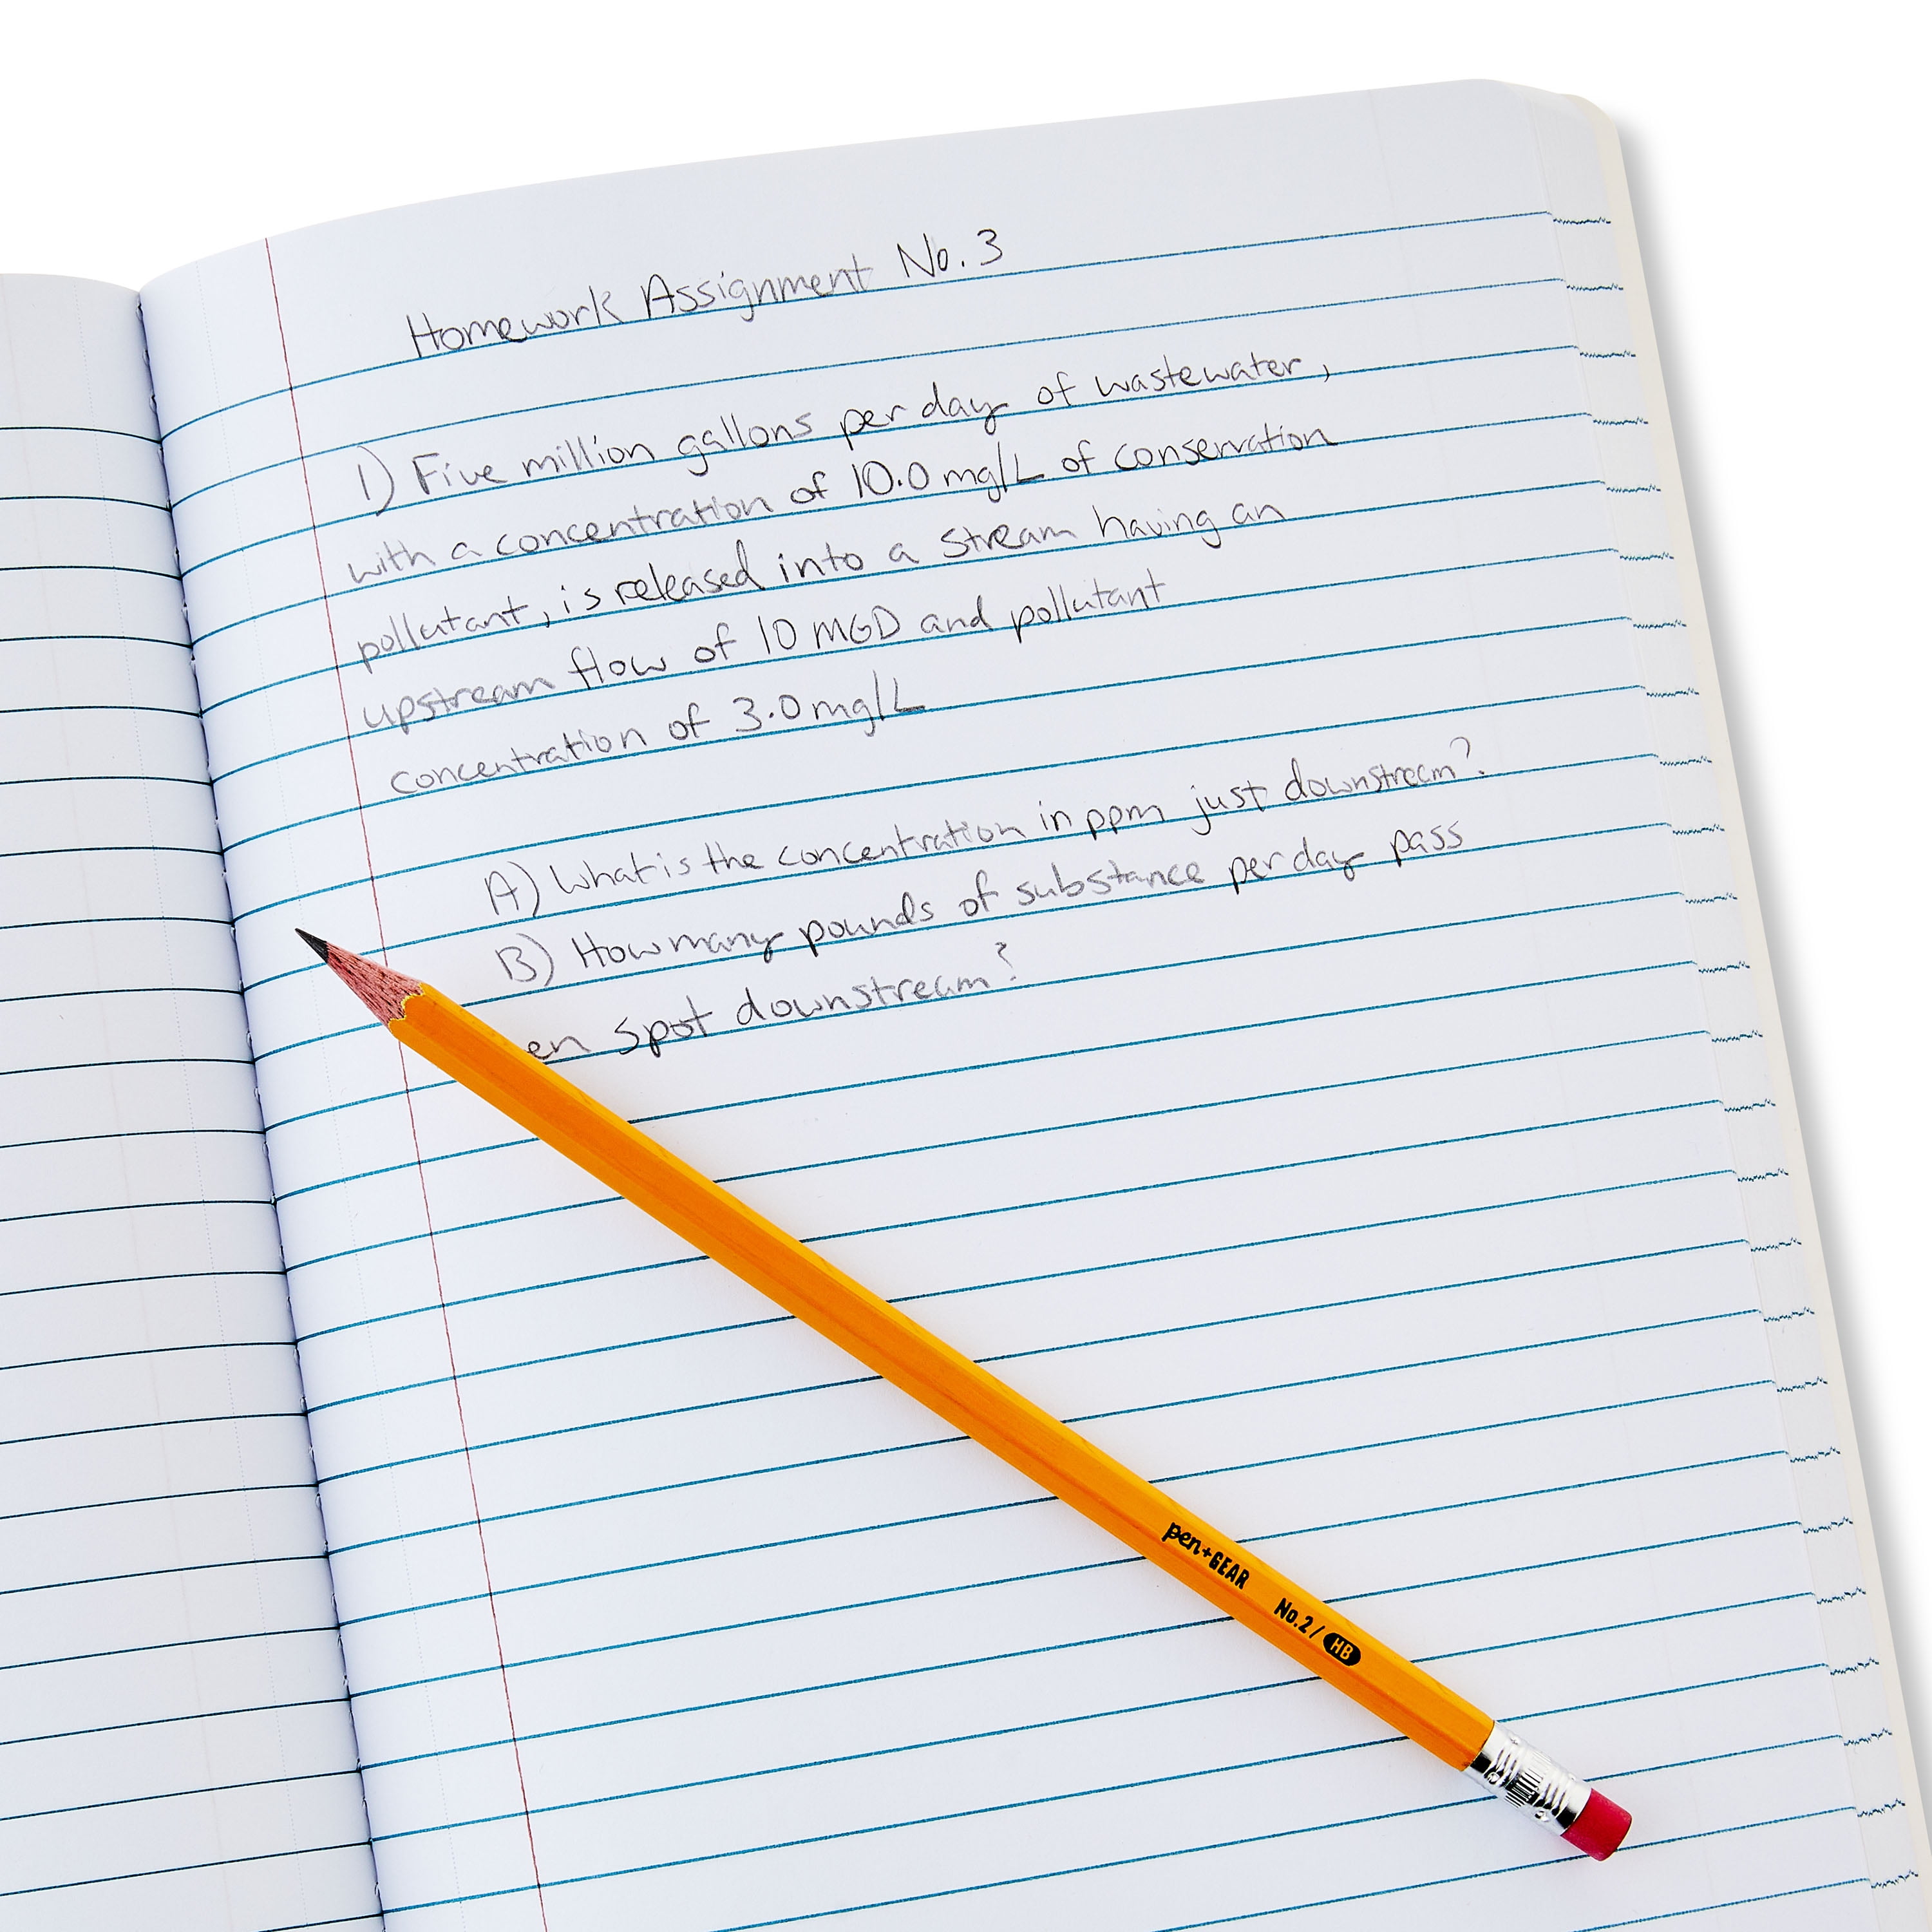 Homework Assignment No. 3
1) Five million gallons per day of wastewater,
with a concentration of 10.0 mg/L of conservation
pollutant, is released into a stream having an
upstream flow of 10 MGD and pollutant
concentration of 3.0 mg/L
A) What is the concentration in ppm just downstream?
B) How many pounds of substance per day pass
en spot downstream?
pen+GEAR No. 2 / HB